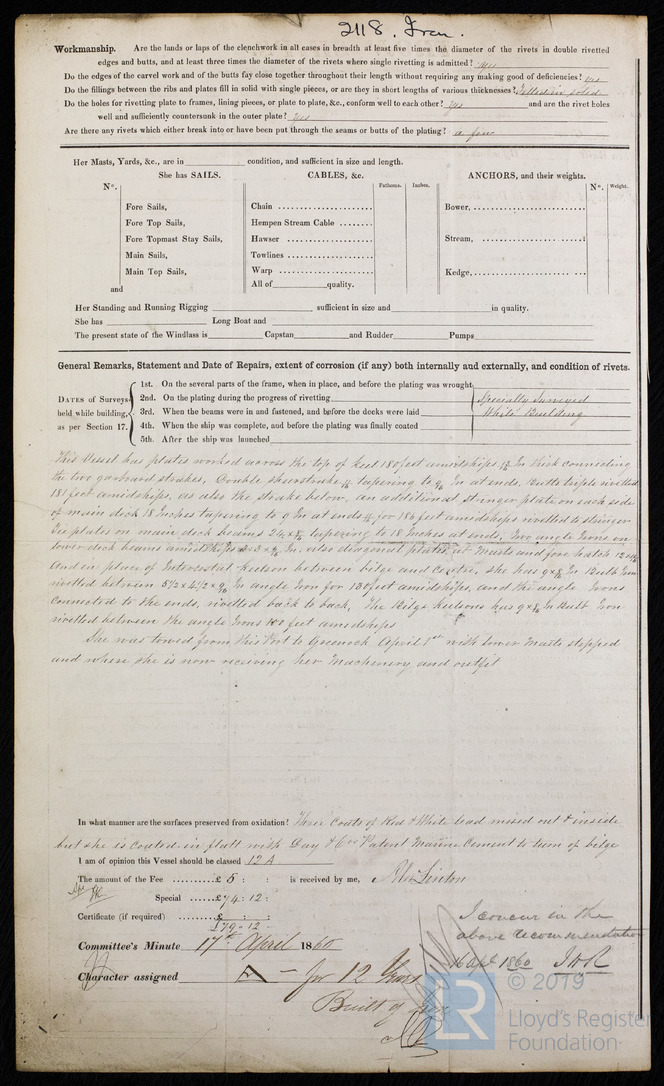 2118. Iron.
Workmanship. Are the lands or laps of the clenchwork in all cases in breadth at least five times the diameter of the rivets in double rivetted
edges and butts, and at least three times the diameter of the rivets where single rivetting is admitted? yes
Do the edges of the carvel work and of the butts fay close together throughout their length without requiring any making good of deficiencies? yes
Do the fillings between the ribs and plates fill in solid with single pieces, or are they in short lengths of various thicknesses? Filled in solid
Do the holes for rivetting plate to frames, lining pieces, or plate to plate, &c., conform well to each other? yes and are the rivet holes
well and sufficiently countersunk in the outer plate? yes
Are there any rivets which either break into or have been put through the seams or butts of the plating? a few
Her Masts, Yards, &c., are in condition, and sufficient in size and length.
She has SAILS. CABLES, &c. Fathoms. Inches. ANCHORS, and their weights.
N°. N°. Weight.
Fore Sails, Chain Bower,
Fore Top Sails, Hempen Stream Cable
Fore Topmast Stay Sails, Hawser Stream,
Main Sails, Towlines
Main Top Sails, Warp Kedge,
and All of quality.
Her Standing and Running Rigging sufficient in size and in quality.
She has Long Boat and
The present state of the Windlass is Capstan and Rudder Pumps
General Remarks, Statement and Date of Repairs, extent of corrosion (if any) both internally and externally, and condition of rivets.
DATES of Surveys held while building, as per Section 17.
1st. On the several parts of the frame, when in place, and before the plating was wrought
2nd. On the plating during the progress of rivetting Specially Surveyed
3rd. When the beams were in and fastened, and before the decks were laid While Building
4th. When the ship was complete, and before the plating was finally coated
5th. After the ship was launched
This Vessel has plates worked across the top of keel 180 feet amidships In thick connecting
the two garboard strakes, Double sheerstrake tapering to In at ends, Butts triple rivetted
181 feet amidships, as also the strake below, an additional stringer plate on each side
of main deck 18 Inches tapering to 9 In at ends for 186 feet amidships rivetted to stringer
Tie plates on main deck beams tapering to 18 Inches at ends, Two angle Irons on
lower deck beams amidships In. also diagonal plates at Masts and fore hatch
And in place of Intercostal keelson between bilge and Centre, she has In Bulb Iron
rivetted between 5½ x 4½ x In angle Iron for 130 feet amidships, and the angle Irons
connected to the ends, rivetted back to back, The Bilge Keelsons has In Bulb Iron
rivetted between the angle Irons 100 feet amidships
She was towed from this Port to Greenock April 1st with lower Masts stepped
and where she is now receiving her Machinery and outfit
In what manner are the surfaces preserved from oxidation? Three Coats of Red & White lead mixed out & inside
but she is coated in flatt with Day & Cos Patent Marine Cement to turn of bilge
I am of opinion this Vessel should be classed 12 A
The amount of the Fee £ 5 : : is received by me,
Special £74 : 12 :
Certificate (if required) £ : :
£79 - 12 -
I concur in the
above recommendation
Committee's Minute 17th April 1860
16 Apl 1860
Character assigned A - for 12 Years
Built of Iron
LR
© 2019
Lloyd's Register
Foundation